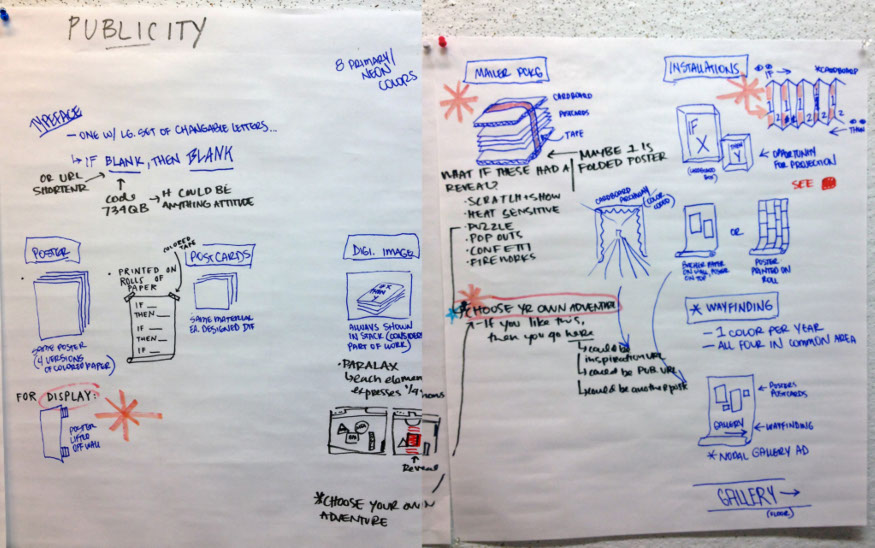 PUBLICITY
8 PRIMARY/
NEON
COLORS
TYPEFACE
— ONE W/ LG. SET OF CHANGABLE LETTERS...
IF BLANK, THEN BLANK
OR URL
SHORTENR
code
734QB
IT COULD BE
ANYTHING ATTITUDE
POSTER
SAME POSTER
(4 VERSIONS
OF COLORED PAPER)
COLORED
TAPE
• PRINTED ON
ROLLS OF
PAPER
IF —
THEN —
IF —
THEN —
IF —
POSTCARDS
SAME MATERIAL
DESIGNED DIF
DIGI. IMAGE
ALWAYS SHOWN
IN STACK (CONSIDER
PART OF WORK)
• PARALAX
each elemen
expresses
Reveal
*CHOOSE YOUR OWN
ADVENTURE
FOR DISPLAY:
POSTER
LIFTED
OFF WALL
MAILER PCKG
CARDBOARD
POSTCARDS
TAPE
MAYBE 1 IS
FOLDED POSTER
WHAT IF THESE HAD A
REVEAL?
• SCRATCH + SHOW
• HEAT SENSITIVE
• PUZZLE
• POP OUTS
• CONFETTI
• FIREWORKS
CARDBOARD ARCHWAY
*CHOOSE YR OWN ADVENTURE
- If you like this,
then you go here
could be
inspiration URL
could be PUB. URL
could be another
INSTALLATIONS
IF
*CARDBOARD
1 1 1 1
2 2 2 2
THEN
IF
X
THEN
Y
OPPORTUNITY
FOR PROJECTION
SEE
OR
BUTCHER PAPER
ON WALL, POSTER
ON TOP
POSTER
PRINTED ON
ROLL
* WAYFINDING
— 1 COLOR PER YEAR
— ALL FOUR IN COMMON AREA
POSTERS
POSTCARDS
GALLERY
WAYFINDING
* NODAL GALLERY AD
GALLERY →
(FLOOR)